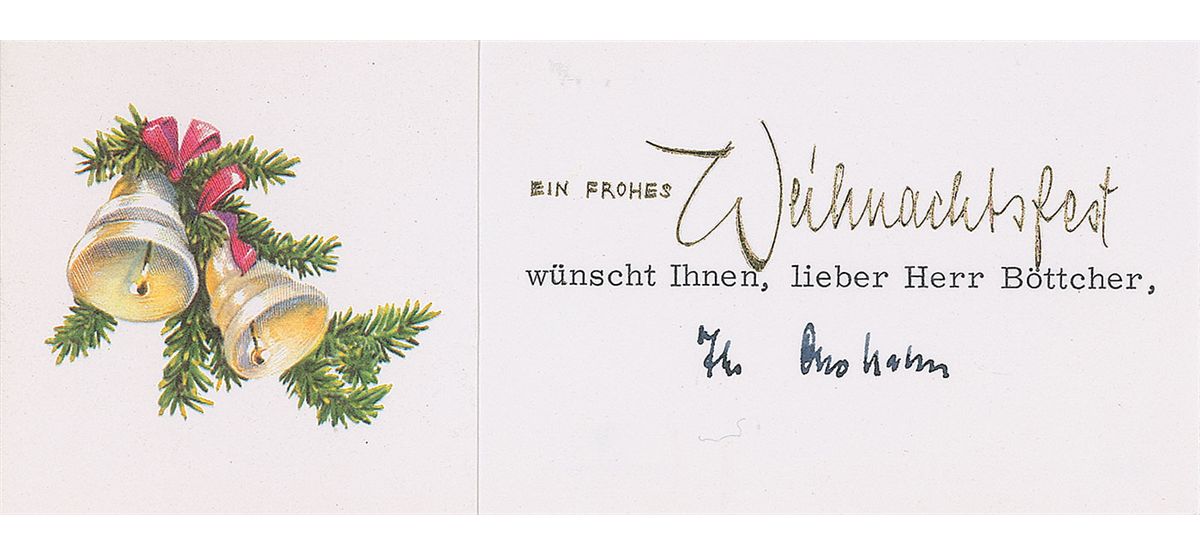 EIN FROHES Weihnachtsfest
wünscht Ihnen, lieber Herr Böttcher,
Ihr Otto Hahn